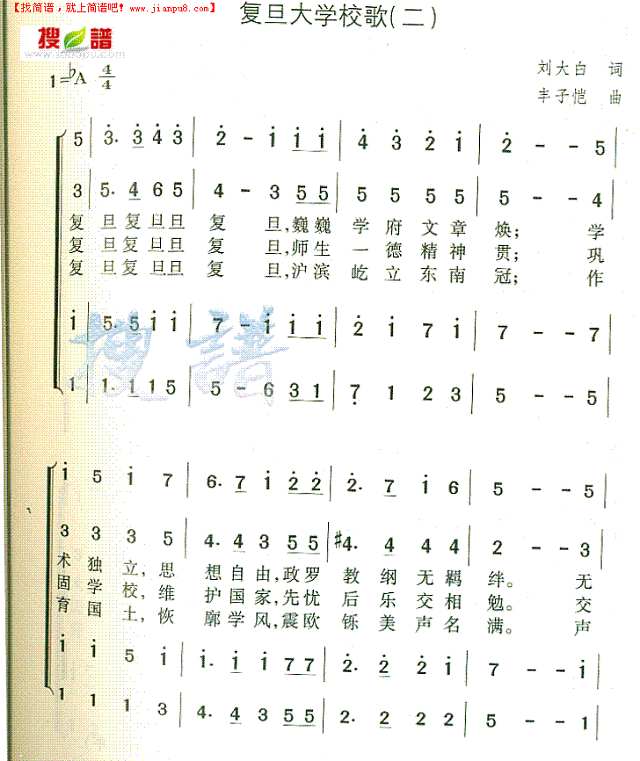 【找简谱，就上简谱吧！】
www.jianpu8.com
搜谱
复旦大学校歌(二)
1=♭A 4/4
刘大白 词
丰子恺 曲
5 | 3. 3 4 3 | 2 - 1 1 1 | 4 3 2 1 | 2 - - 5
3 | 5. 4 6 5 | 4 - 3 5 5 | 5 5 5 5 | 5 - - 4
复 旦复旦旦 复 旦,巍巍 学府文章 焕; 学
复 旦复旦旦 复 旦,师生 一德精神 贯; 巩
复 旦复旦旦 复 旦,沪滨 屹立东南 冠; 作
i | 5. 5 i i | 7 - i i i | 2 i 7 i | 7 - - 7
1 | 1. 1 1 5 | 5 - 6 3 1 | 7 1 2 3 | 5 - - 5
i 5 i 7 | 6. 7 i 2 2 | 2. 7 i 6 | 5 - - i
3 3 3 5 | 4. 4 3 5 5 | #4. 4 4 4 | 5 - - 3
术 独 立,思 想自由,政罗 教 纲无羁 绊。 无
固 学 校,维 护国家,先忧 后 乐交相 勉。 交
育 国 土,恢 廓学风,震欧 铄 美声名 满。 声
i i 5 i | i. i i 7 7 | 2. 2 2 i | 7 - - i
1 1 1 3 | 4. 4 3 5 5 | 2. 2 2 2 | 5 - - 1